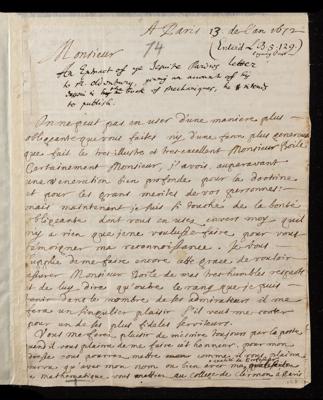 A Paris 13 de l'an 1672
Monsieur
74
(Enter'd L.B. 5. 129.)
An Extract of ye Jesuite Pardies letter
to Mr Oldenburg, giving an account of his
book of Mechaniques, he intends
to publish.
On ne peut pas en user d'une maniere plus
obligeante que vous faits ny d'une façon plus genereuse
que fait le tres illustre et tres excellent Monsieur Boile.
Certainement Monsieur, j'avois auparavant
une veneration bien profonde pour la doctrine
et pour les grans merites de vos personnes:
mais maintenant je suis si touché de la bonté
obligeante dont vous en usez envers moy, quil
ny a rien que je ne voulusse faire pour vous
témoigner ma reconnoissance. Je vous
supplie de me faire encore cette grace de vouloir
assurer Monsieur Boile de mes tres humbles respects
et de luy dire qu'outre le rang que je puis
tenir dans le nombre de ses admirateurs il me
fera un singulier plaisir s'il veut me conter
pour un de ses plus fideles serviteurs.
Vous me ferez plaisir de m'écrire toujours par la poste
quand il vous plaira de me faire cet honneur. pour mon
vous pourrez mettre comme il vous plaira
qu'avec mon nom ou bien avec ma
mathematique au college de Clermon a Paris